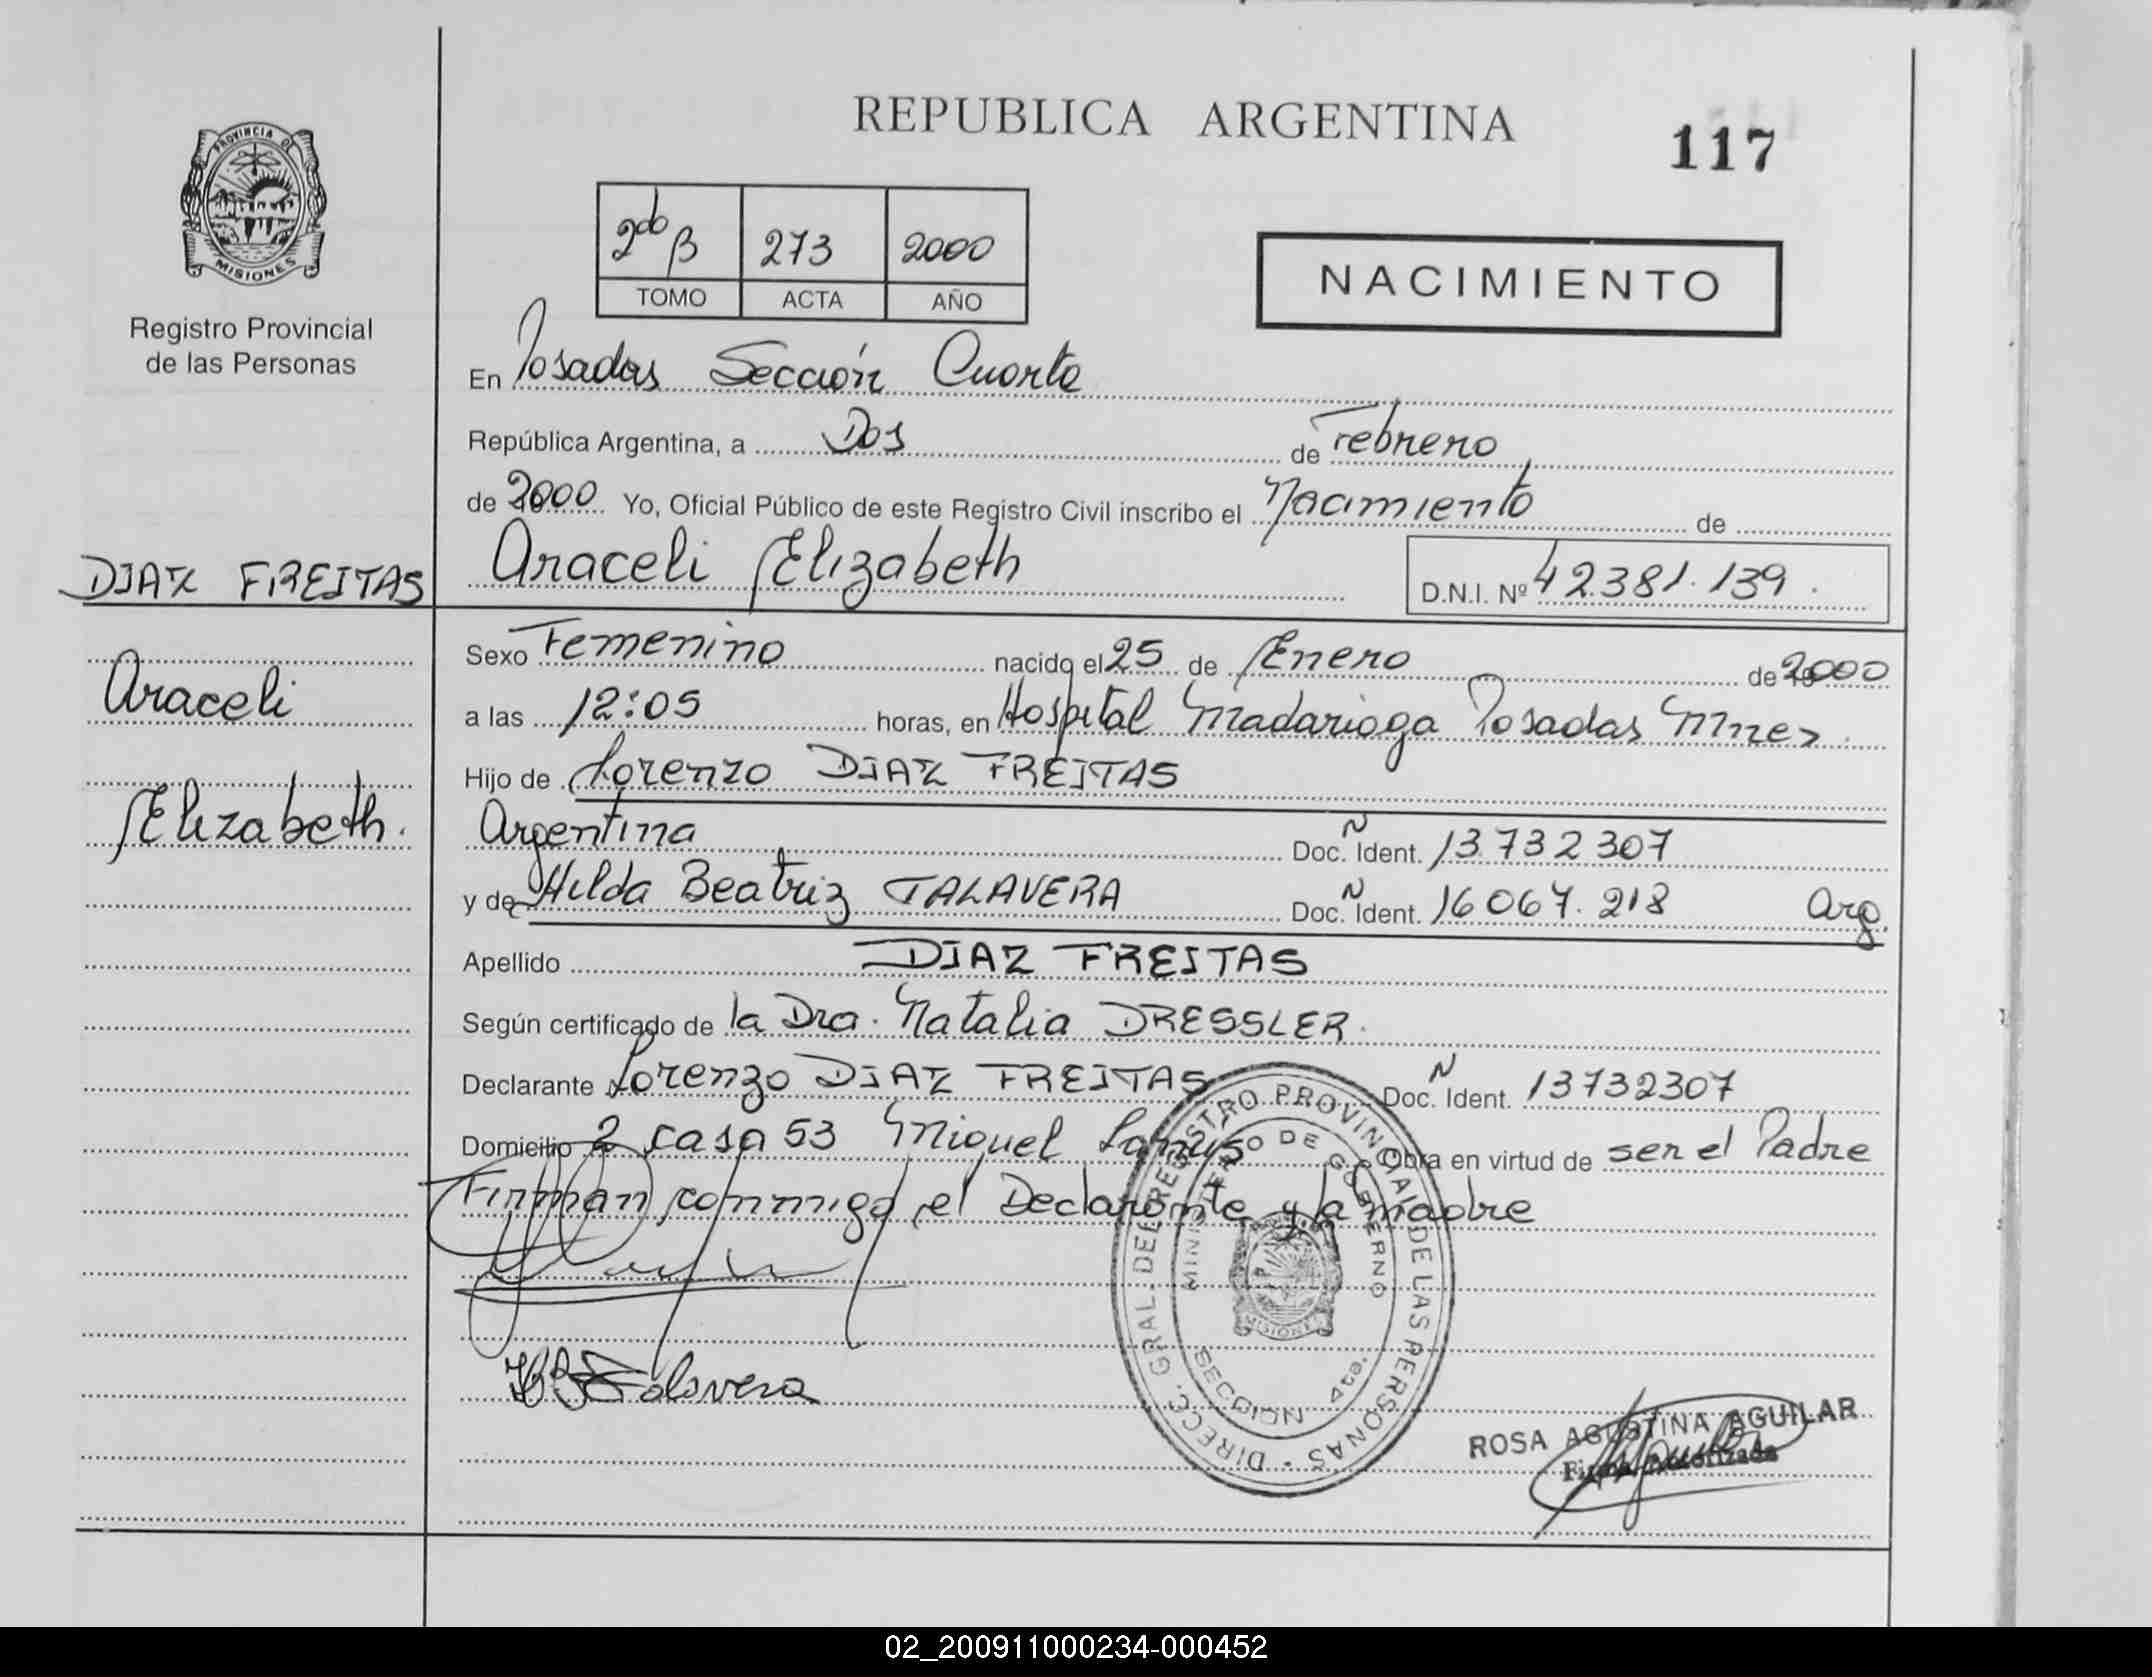 REPUBLICA ARGENTINA
117
PROVINCIA DE
MISIONES
Registro Provincial
de las Personas
2do B 273 2000
TOMO ACTA AÑO
NACIMIENTO
En Posadas Sección Cuarta
República Argentina, a Dos de Febrero
de 2000 Yo, Oficial Público de este Registro Civil inscribo el Nacimiento de
DIAZ FREITAS
Araceli Elizabeth
D.N.I. Nº 42381.139.
Araceli
Elizabeth.
Sexo Femenino nacido el 25 de Enero de 2000
a las 12:05 horas, en Hospital Madariaga Posadas Mnes
Hijo de Lorenzo DIAZ FREITAS
Argentina Doc. Ident. 13732307
y de Hilda Beatriz TALAVERA Doc. Ident. 16067.218 Arg.
Apellido DIAZ FREITAS
Según certificado de la Dra. Natalia DRESSLER.
Declarante Lorenzo DIAZ FREITAS Doc. Ident. 13732307
Domicilio 2 casa 53 Miguel Lanus Obra en virtud de ser el Padre
Firman conmigo el Declarante y la madre
DIRECC. GRAL. DEL REGISTRO PROVINCIAL DE LAS PERSONAS
MINISTERIO DE GOBIERNO
MISIONES
SECCION 4ta.
H B Talavera
ROSA AGUSTINA AGUILAR
Firma Autorizada
02_200911000234-000452